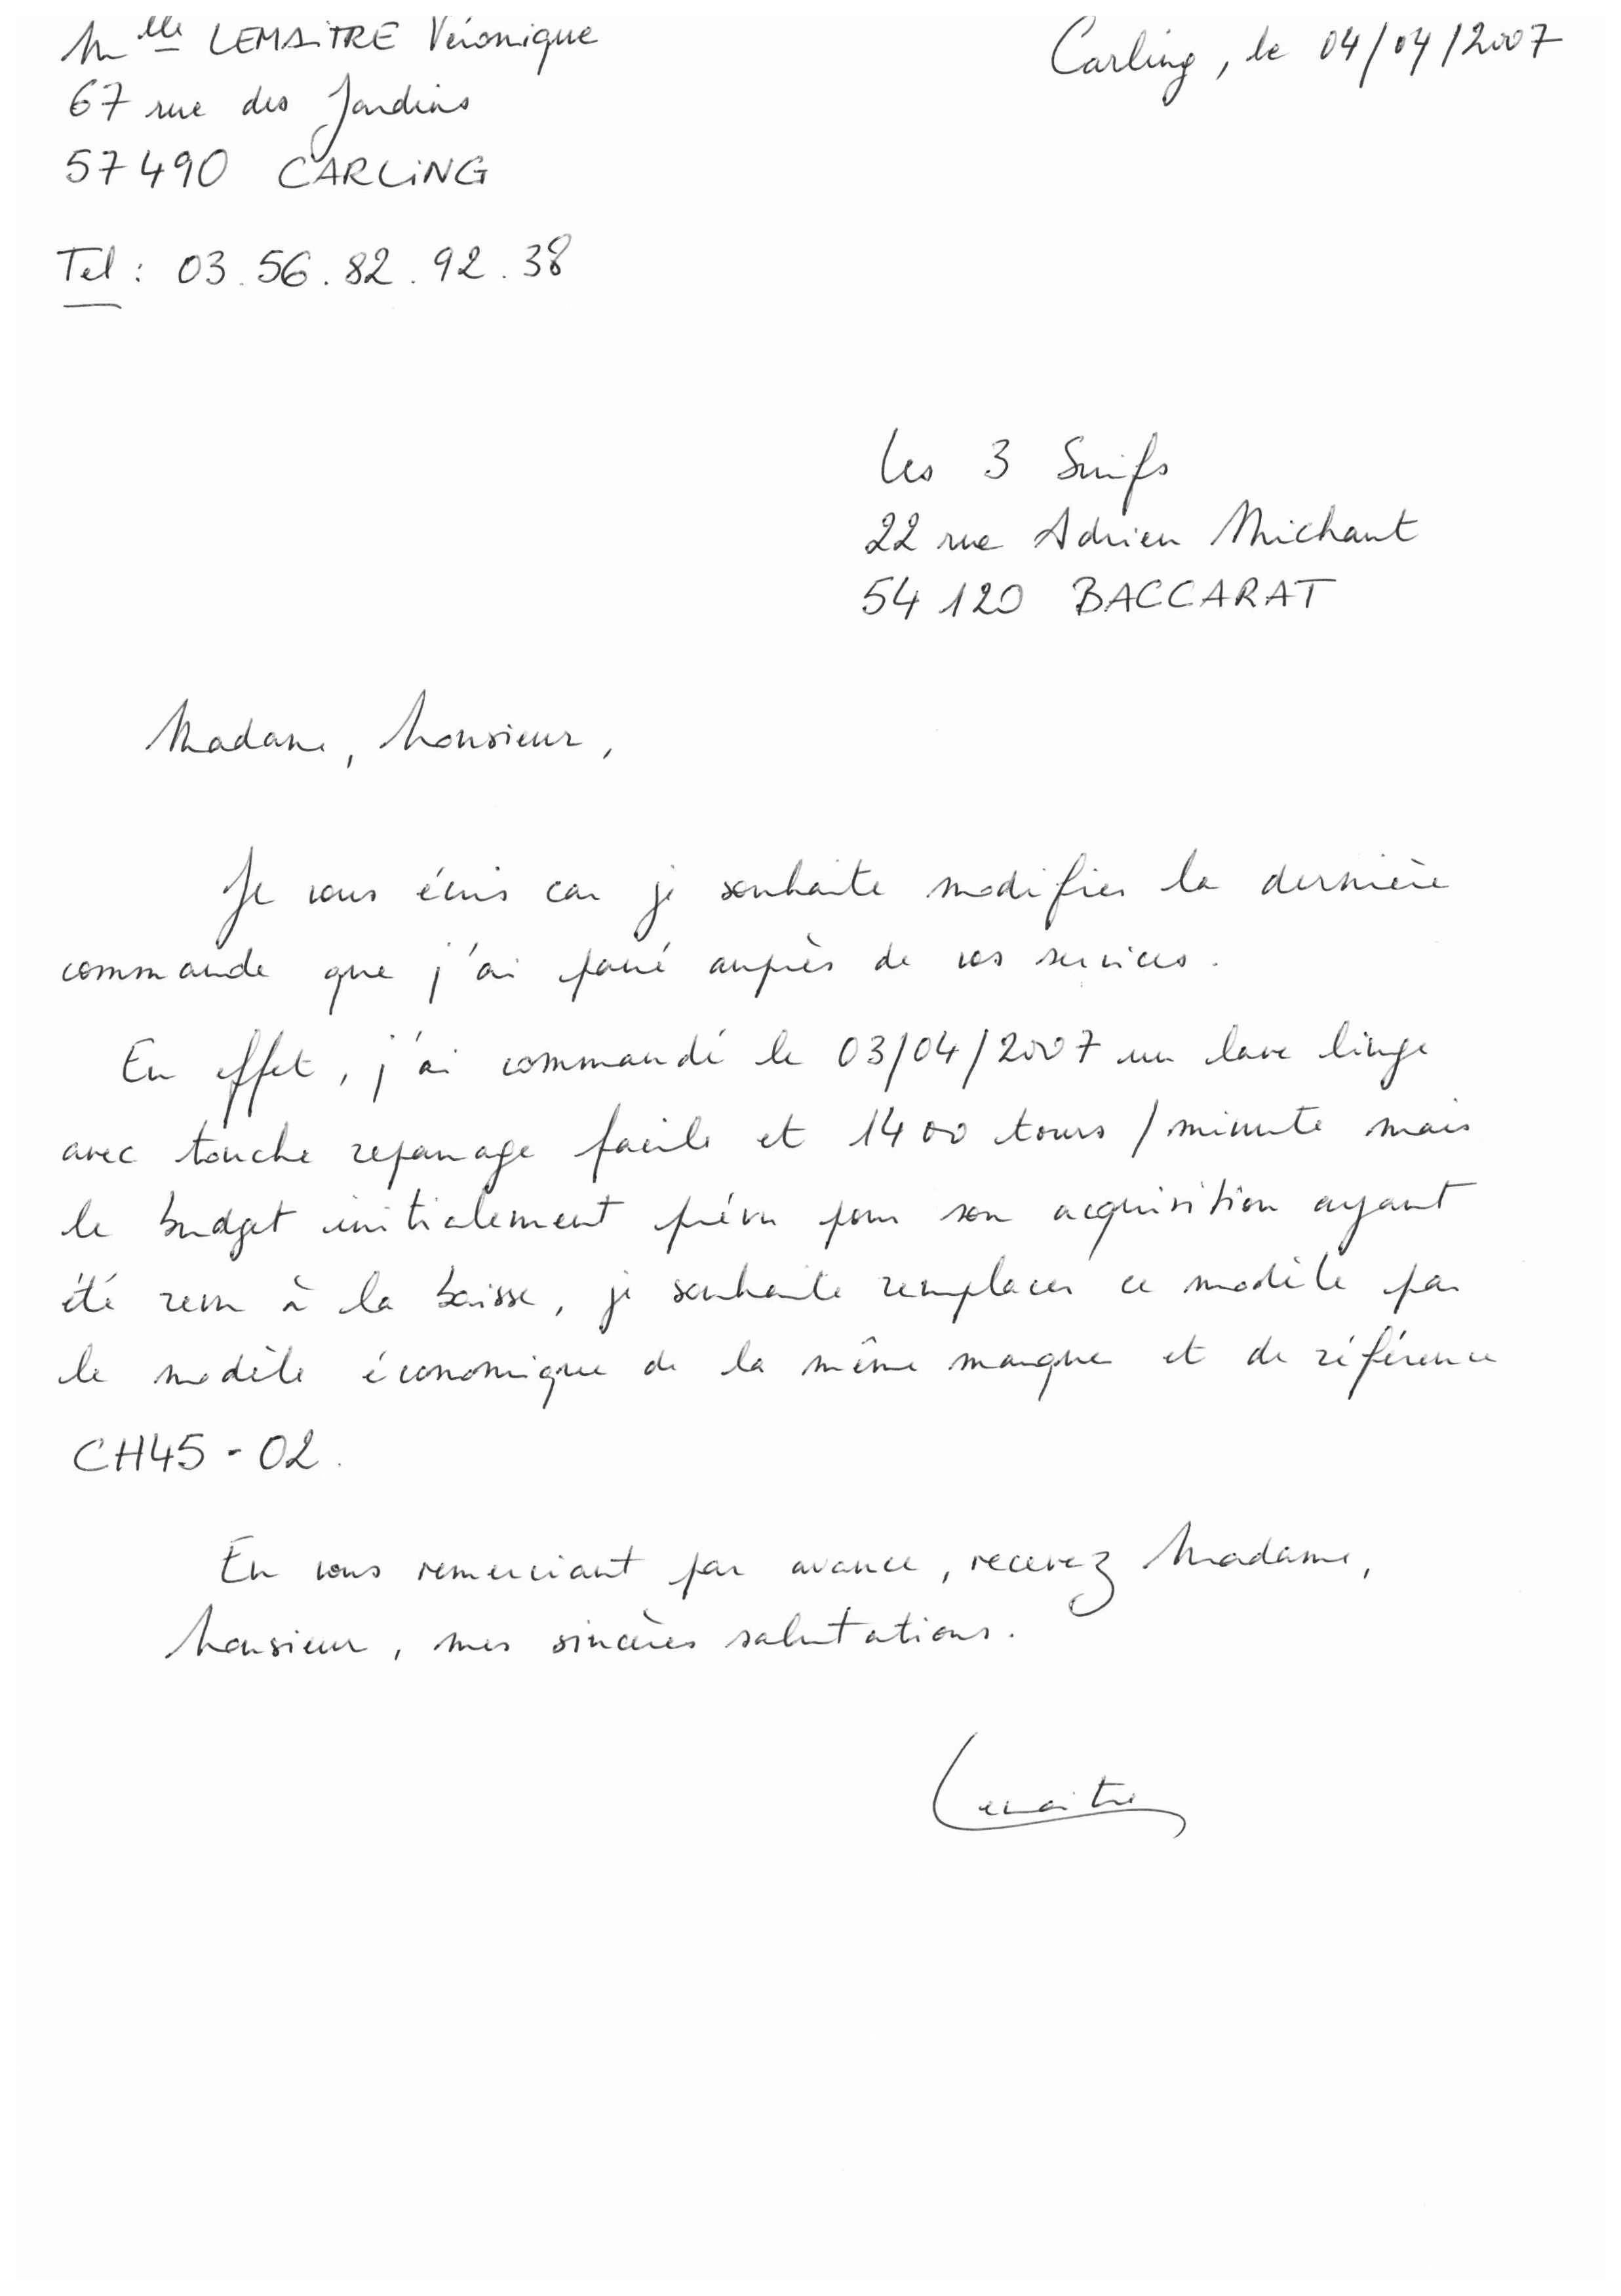 Mlle LEMAITRE Véronique
Carling, le 04/04/2007
67 rue des Jardins
57490 CARLING
Tel : 03.56.82.92.38
Les 3 Suifs
22 rue Adrien Michaut
54120 BACCARAT
Madame, Monsieur,
Je vous écris car je souhaite modifier la dernière
commande que j'ai passé auprès de vos services.
En effet, j'ai commandé le 03/04/2007 un lave linge
avec touche repassage facile et 1400 tours / minute mais
le budget initialement prévu pour son acquisition ayant
été revu à la baisse, je souhaite remplacer ce modèle par
le modèle économique de la même marque et de référence
CH45-02.
En vous remerciant par avance, recevez Madame,
Monsieur, mes sincères salutations.
Lemaitre